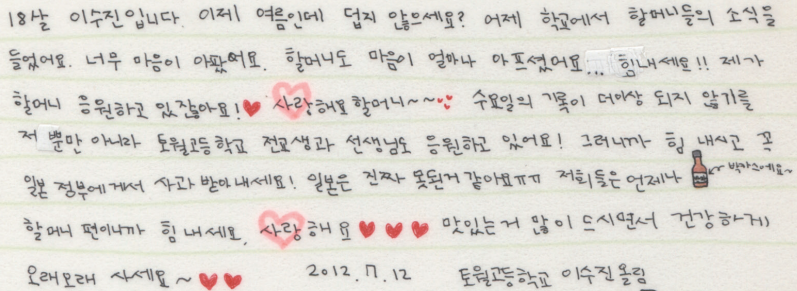 18살 이수진입니다. 이제 여름인데 덥지 않으세요? 어제 학교에서 할머니들의 소식을
들었어요. 너무 마음이 아팠어요. 할머니도 마음이 얼마나 아프셨어요... 힘내세요!! 제가
할머니 응원하고 있잖아요!♥ 사랑해요 할머니~~♥♥ 수요일의 기록이 더이상 되지 않기를
저 뿐만 아니라 토월고등학교 전교생과 선생님도 응원하고 있어요! 그러니까 힘 내시고 꼭
일본 정부에게서 사과 받아내세요! 일본은 진짜 못된거 같아요ㅠㅠ 저희들은 언제나 박카스에요~
할머니 편이니까 힘 내세요. 사랑해요 ♥♥♥ 맛있는거 많이 드시면서 건강하게
오래오래 사세요~♥♥ 2012.7.12 토월고등학교 이수진 올림